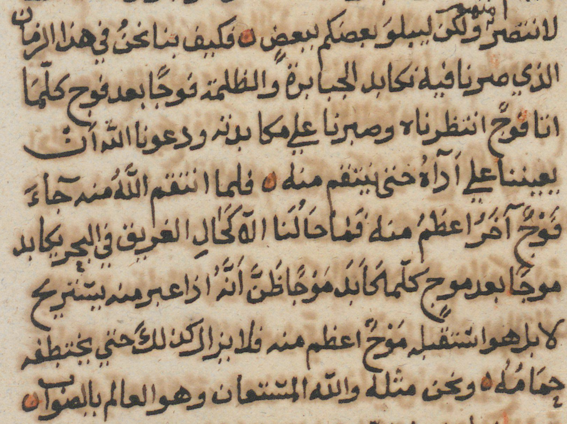 لانتصر منهم ولكن ليبلو بعضكم ببعض ۞ فكيف بنا نحن في هذا الزمان
الذي صرنا فيه نكابد الجبابرة والظلمة فوجًا بعد فوج كلّما
اتا فوجٌ انتظرناه وصبرنا علي مكابدته ودعونا اللّه أن
يعيننا علي اَرآهُ حتى ينتقم منه ۞ فلما انتقم اللّهُ منه جآءَ
فَوْجٌ آخَرُ اعظمُ منه فَمَا حَالُنَا الّا كَحَالِ الغريق في البحر يكابد
موجًا بعد موج كلّما كَابَدَ مَوْجًا ظَنَّ اَنَّهُ اذا عبر منه يستريح
لا بل هوا ستقبله مَوْجٌ اعظم منه فلا يزال كذلكَ حتي يختطفه
حِمَامُهُ ۞ ونحن مثله واللّه المسْتَعان وهو العالم بالصّواب ۞